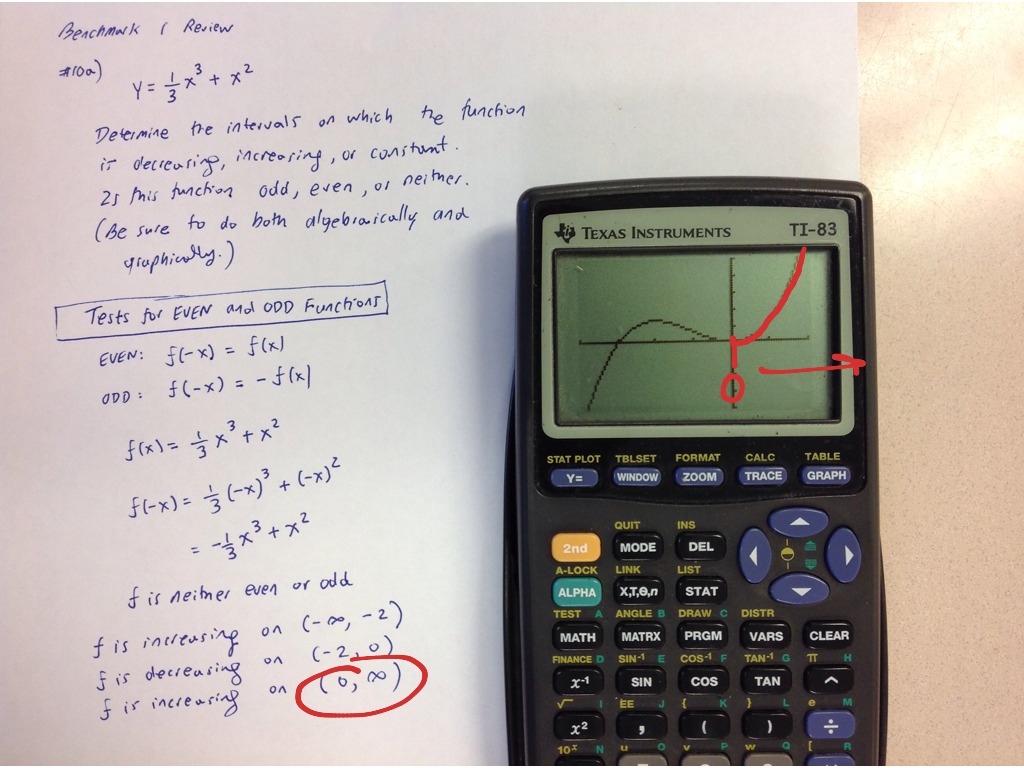 Benchmark 1 Review
#10a) y = 1/3 x³ + x²
Determine the intervals on which the function
is decreasing, increasing, or constant.
Is this function odd, even, or neither.
(Be sure to do both algebraically and
graphically.)
Tests for EVEN and ODD Functions
EVEN: f(-x) = f(x)
ODD: f(-x) = -f(x)
f(x) = 1/3 x³ + x²
f(-x) = 1/3 (-x)³ + (-x)²
= -1/3 x³ + x²
f is neither even or odd
f is increasing on (-∞, -2)
f is decreasing on (-2, 0)
f is increasing on (0, ∞)
TEXAS INSTRUMENTS TI-83
0
STAT PLOT TBLSET FORMAT CALC TABLE
Y= WINDOW ZOOM TRACE GRAPH
QUIT INS
2nd MODE DEL
A-LOCK LINK LIST
ALPHA X,T,θ,n STAT
TEST A ANGLE B DRAW C DISTR
MATH MATRX PRGM VARS CLEAR
FINANCE D SIN⁻¹ E COS⁻¹ F TAN⁻¹ G π H
x⁻¹ SIN COS TAN ^
√ I EE J { K } L e M
x² , ( ) ÷
10ˣ N u O v P w Q [ R